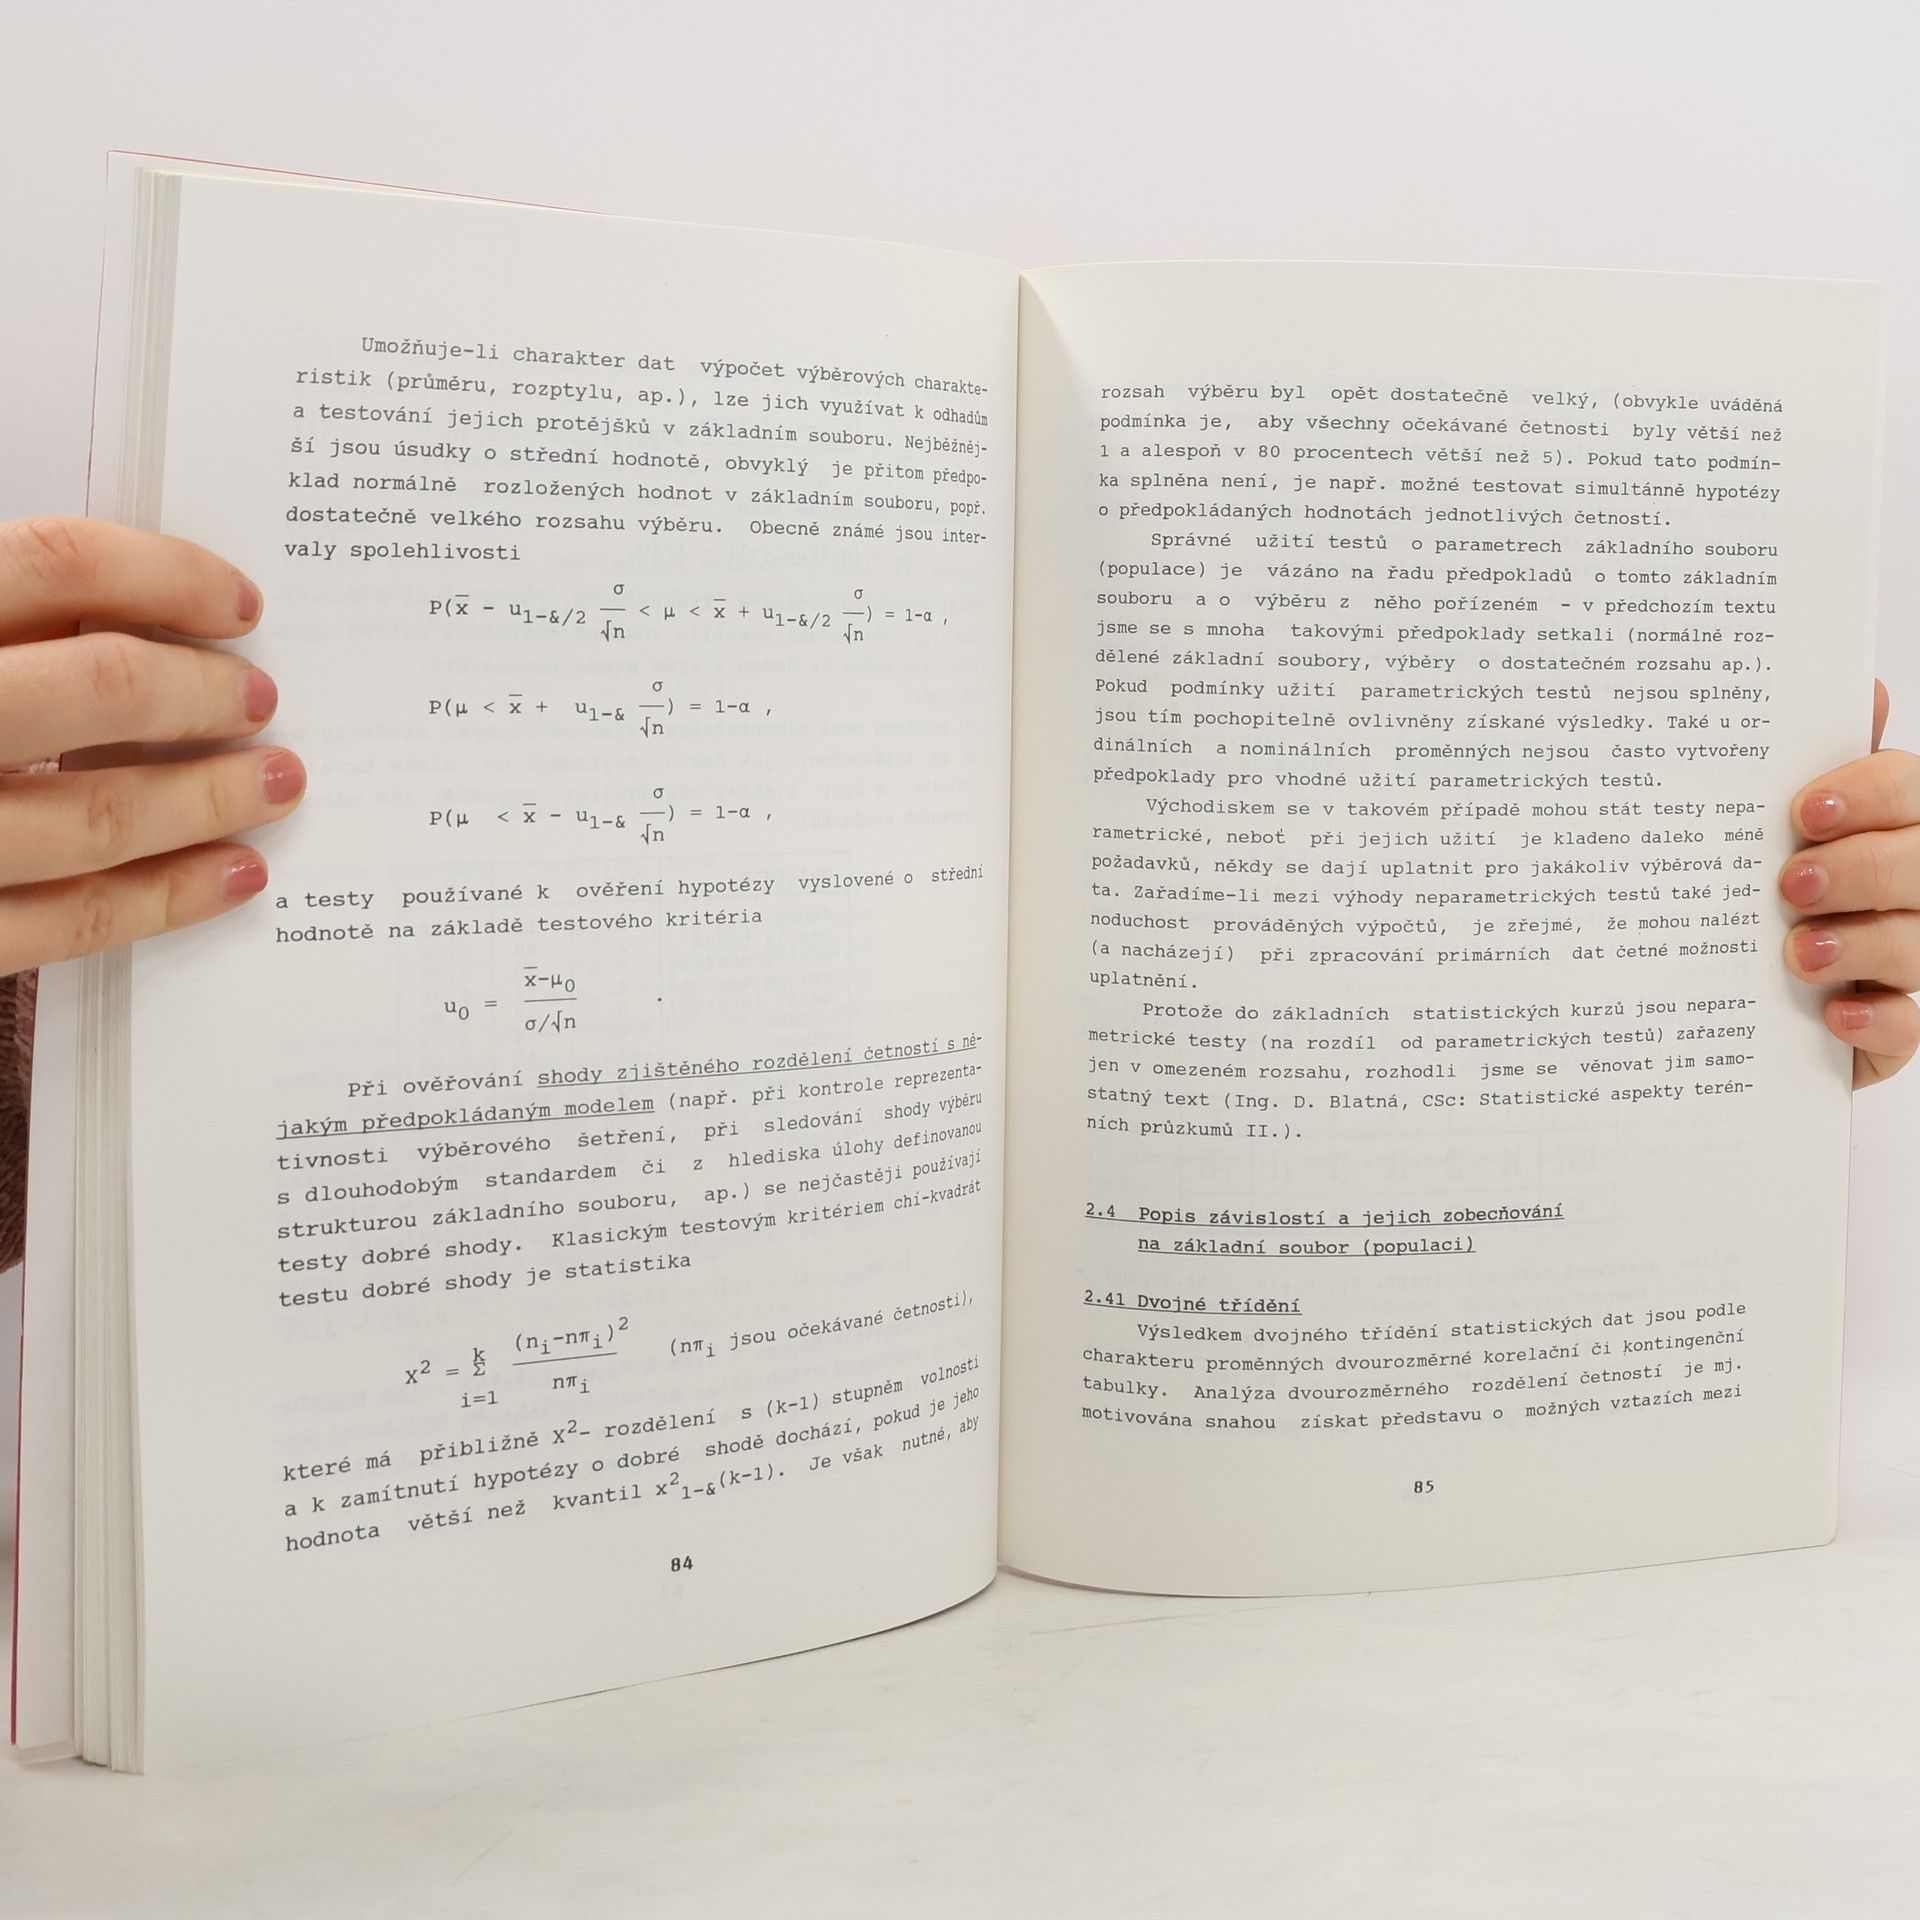 Umožňuje-li charakter dat výpočet výběrových charakte-
ristik (průměru, rozptylu, ap.), lze jich využívat k odhadům
a testování jejich protějšků v základním souboru. Nejběžněj-
ší jsou úsudky o střední hodnotě, obvyklý je přitom předpo-
klad normálně rozložených hodnot v základním souboru, popř.
dostatečně velkého rozsahu výběru. Obecně známé jsou inter-
valy spolehlivosti
P(x̅ - u₁₋&/₂ σ/√n < μ < x̅ + u₁₋&/₂ σ/√n) = 1-α ,
P(μ < x̅ + u₁₋& σ/√n) = 1-α ,
P(μ < x̅ - u₁₋& σ/√n) = 1-α ,
a testy používané k ověření hypotézy vyslovené o střední
hodnotě na základě testového kritéria
u₀ = (x̅-μ₀)/(σ/√n) .
Při ověřování shody zjištěného rozdělení četností s ně-
jakým předpokládaným modelem (např. při kontrole reprezenta-
tivnosti výběrového šetření, při sledování shody výběru
s dlouhodobým standardem či z hlediska úlohy definovanou
strukturou základního souboru, ap.) se nejčastěji používají
testy dobré shody. Klasickým testovým kritériem chí-kvadrát
testu dobré shody je statistika
X² = Σ (nᵢ-nπᵢ)²/nπᵢ k i=1 (nπᵢ jsou očekávané četnosti),
které má přibližně X²- rozdělení s (k-1) stupněm volnosti
a k zamítnutí hypotézy o dobré shodě dochází, pokud je jeho
hodnota větší než kvantil x²₁₋&(k-1). Je však nutné, aby
84
rozsah výběru byl opět dostatečně velký, (obvykle uváděná
podmínka je, aby všechny očekávané četnosti byly větší než
1 a alespoň v 80 procentech větší než 5). Pokud tato podmín-
ka splněna není, je např. možné testovat simultánně hypotézy
o předpokládaných hodnotách jednotlivých četností.
Správné užití testů o parametrech základního souboru
(populace) je vázáno na řadu předpokladů o tomto základním
souboru a o výběru z něho pořízeném - v předchozím textu
jsme se s mnoha takovými předpoklady setkali (normálně roz-
dělené základní soubory, výběry o dostatečném rozsahu ap.).
Pokud podmínky užití parametrických testů nejsou splněny,
jsou tím pochopitelně ovlivněny získané výsledky. Také u or-
dinálních a nominálních proměnných nejsou často vytvořeny
předpoklady pro vhodné užití parametrických testů.
Východiskem se v takovém případě mohou stát testy nepa-
rametrické, neboť při jejich užití je kladeno daleko méně
požadavků, někdy se dají uplatnit pro jakákoliv výběrová da-
ta. Zařadíme-li mezi výhody neparametrických testů také jed-
noduchost prováděných výpočtů, je zřejmé, že mohou nalézt
(a nacházejí) při zpracování primárních dat četné možnosti
uplatnění.
Protože do základních statistických kurzů jsou nepara-
metrické testy (na rozdíl od parametrických testů) zařazeny
jen v omezeném rozsahu, rozhodli jsme se věnovat jim samo-
statný text (Ing. D. Blatná, CSc: Statistické aspekty terén-
ních průzkumů II.).
2.4 Popis závislostí a jejich zobecňování
na základní soubor (populaci)
2.41 Dvojné třídění
Výsledkem dvojného třídění statistických dat jsou podle
charakteru proměnných dvourozměrné korelační či kontingenční
tabulky. Analýza dvourozměrného rozdělení četností je mj.
motivována snahou získat představu o možných vztazích mezi
85